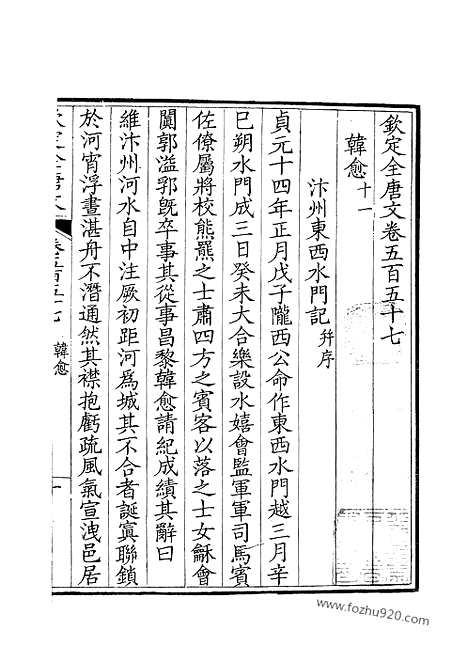 欽定全唐文卷五百五十七
韓愈十一
汴州東西水門記并序
貞元十四年正月戊子隴西公命作東西水門越三月辛
巳朔水門成三日癸未大合樂設水嬉會監軍軍司馬賓
佐僚屬將校熊羆之士肅四方之賓客以落之士女龢會
闐郭溢郛旣卒事其從事昌黎韓愈請紀成績其辭曰
維汴州河水自中注厥初距河爲城其不合者誕寘聯鎖
於河宵浮晝湛舟不潛通然其襟抱虧疏風氣宣洩邑居
欽定全唐文 卷五百五十七 韓愈 一
www.fozhu920.com